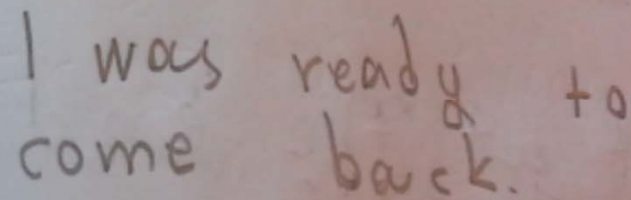 I was ready to
come back.